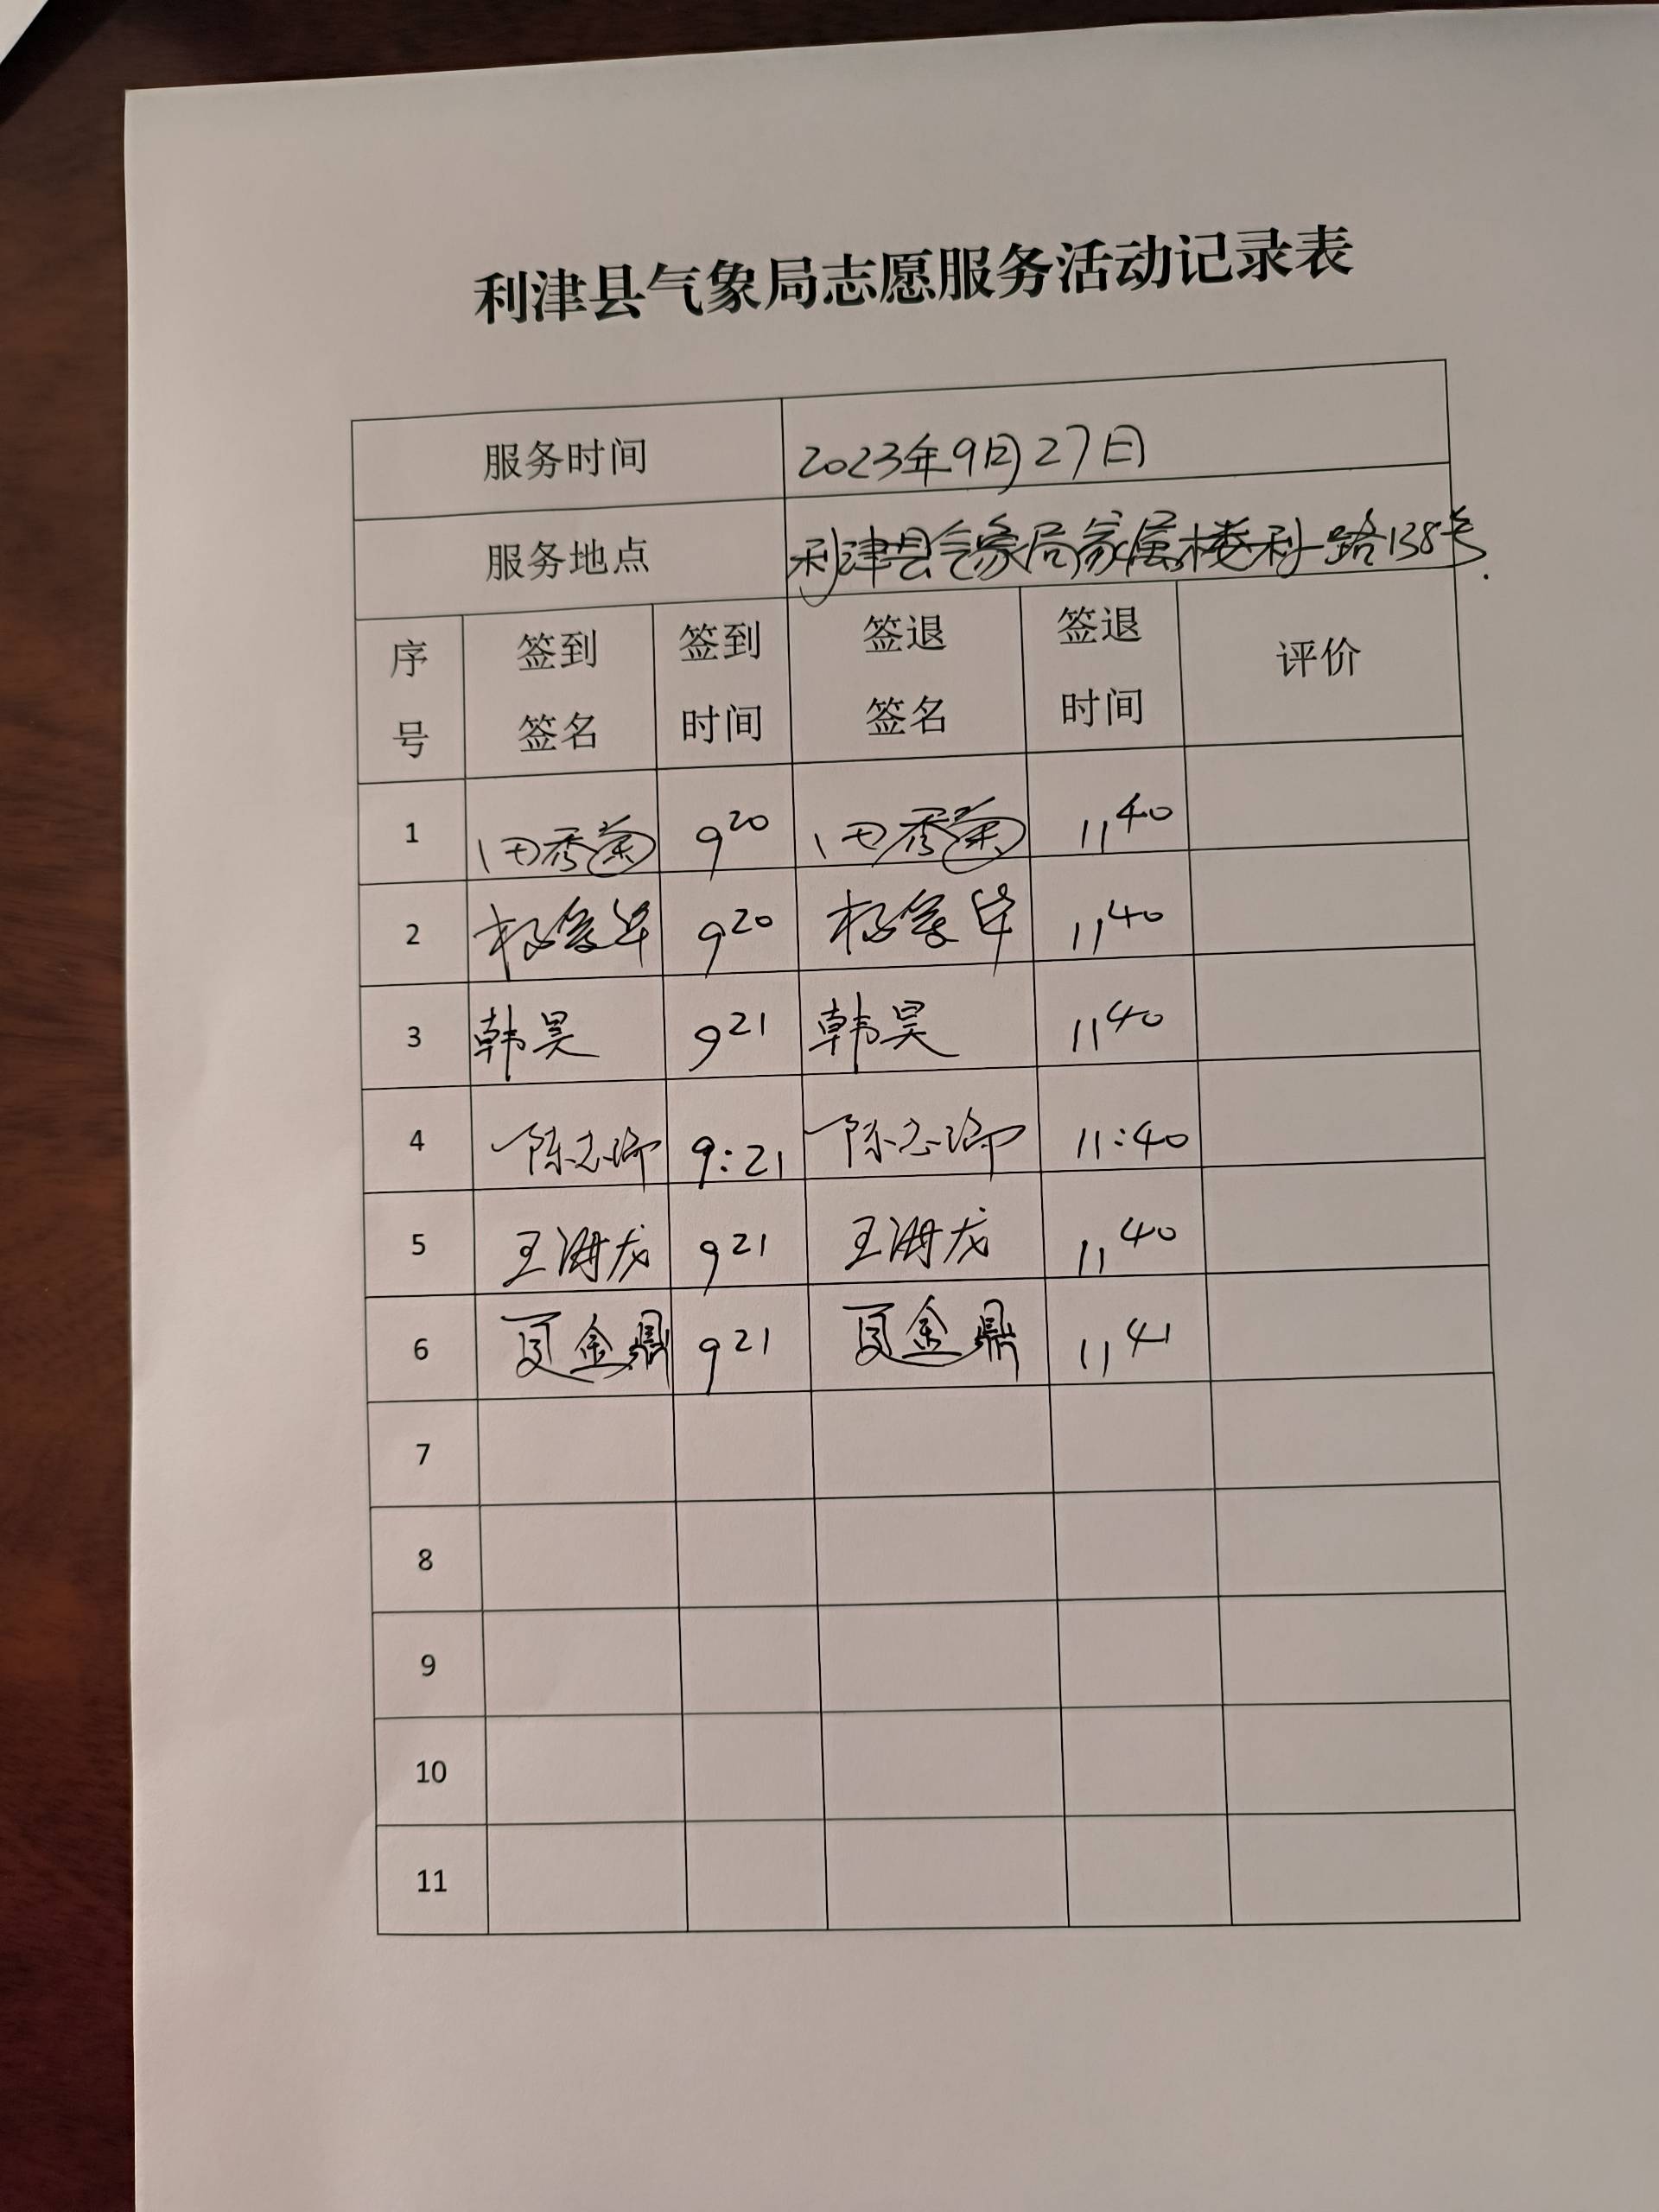 利津县气象局志愿服务活动记录表
服务时间 2023年9月27日
服务地点 利津县气象局家属楼利一路138号.
序号 签到签名 签到时间 签退签名 签退时间 评价
1 田秀菊 9 20 田秀菊 11 40
2 杨 9 20 杨 11 40
3 韩昊 9 21 韩昊 11 40
4 陈志 9:21 陈志 11:40
5 王海龙 9 21 王海龙 11 40
6 夏金鼎 9 21 夏金鼎 11 41
7
8
9
10
11